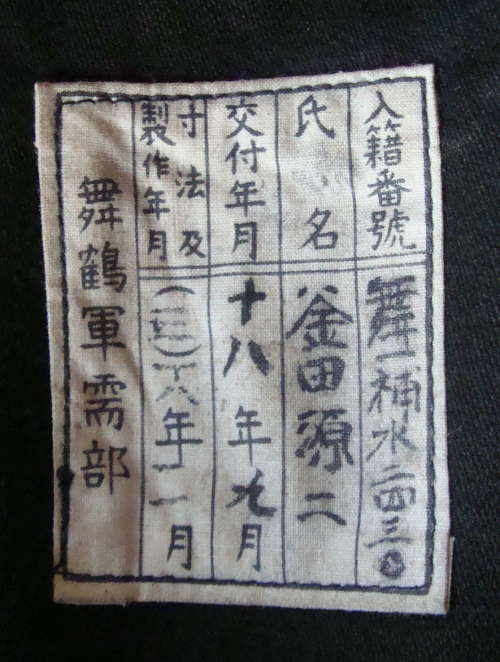 入籍番號 舞一補水二四三〇
氏名 釜田源二
交付年月 十八年九月
寸法及
製作年月 十八年二月
舞鶴軍需部